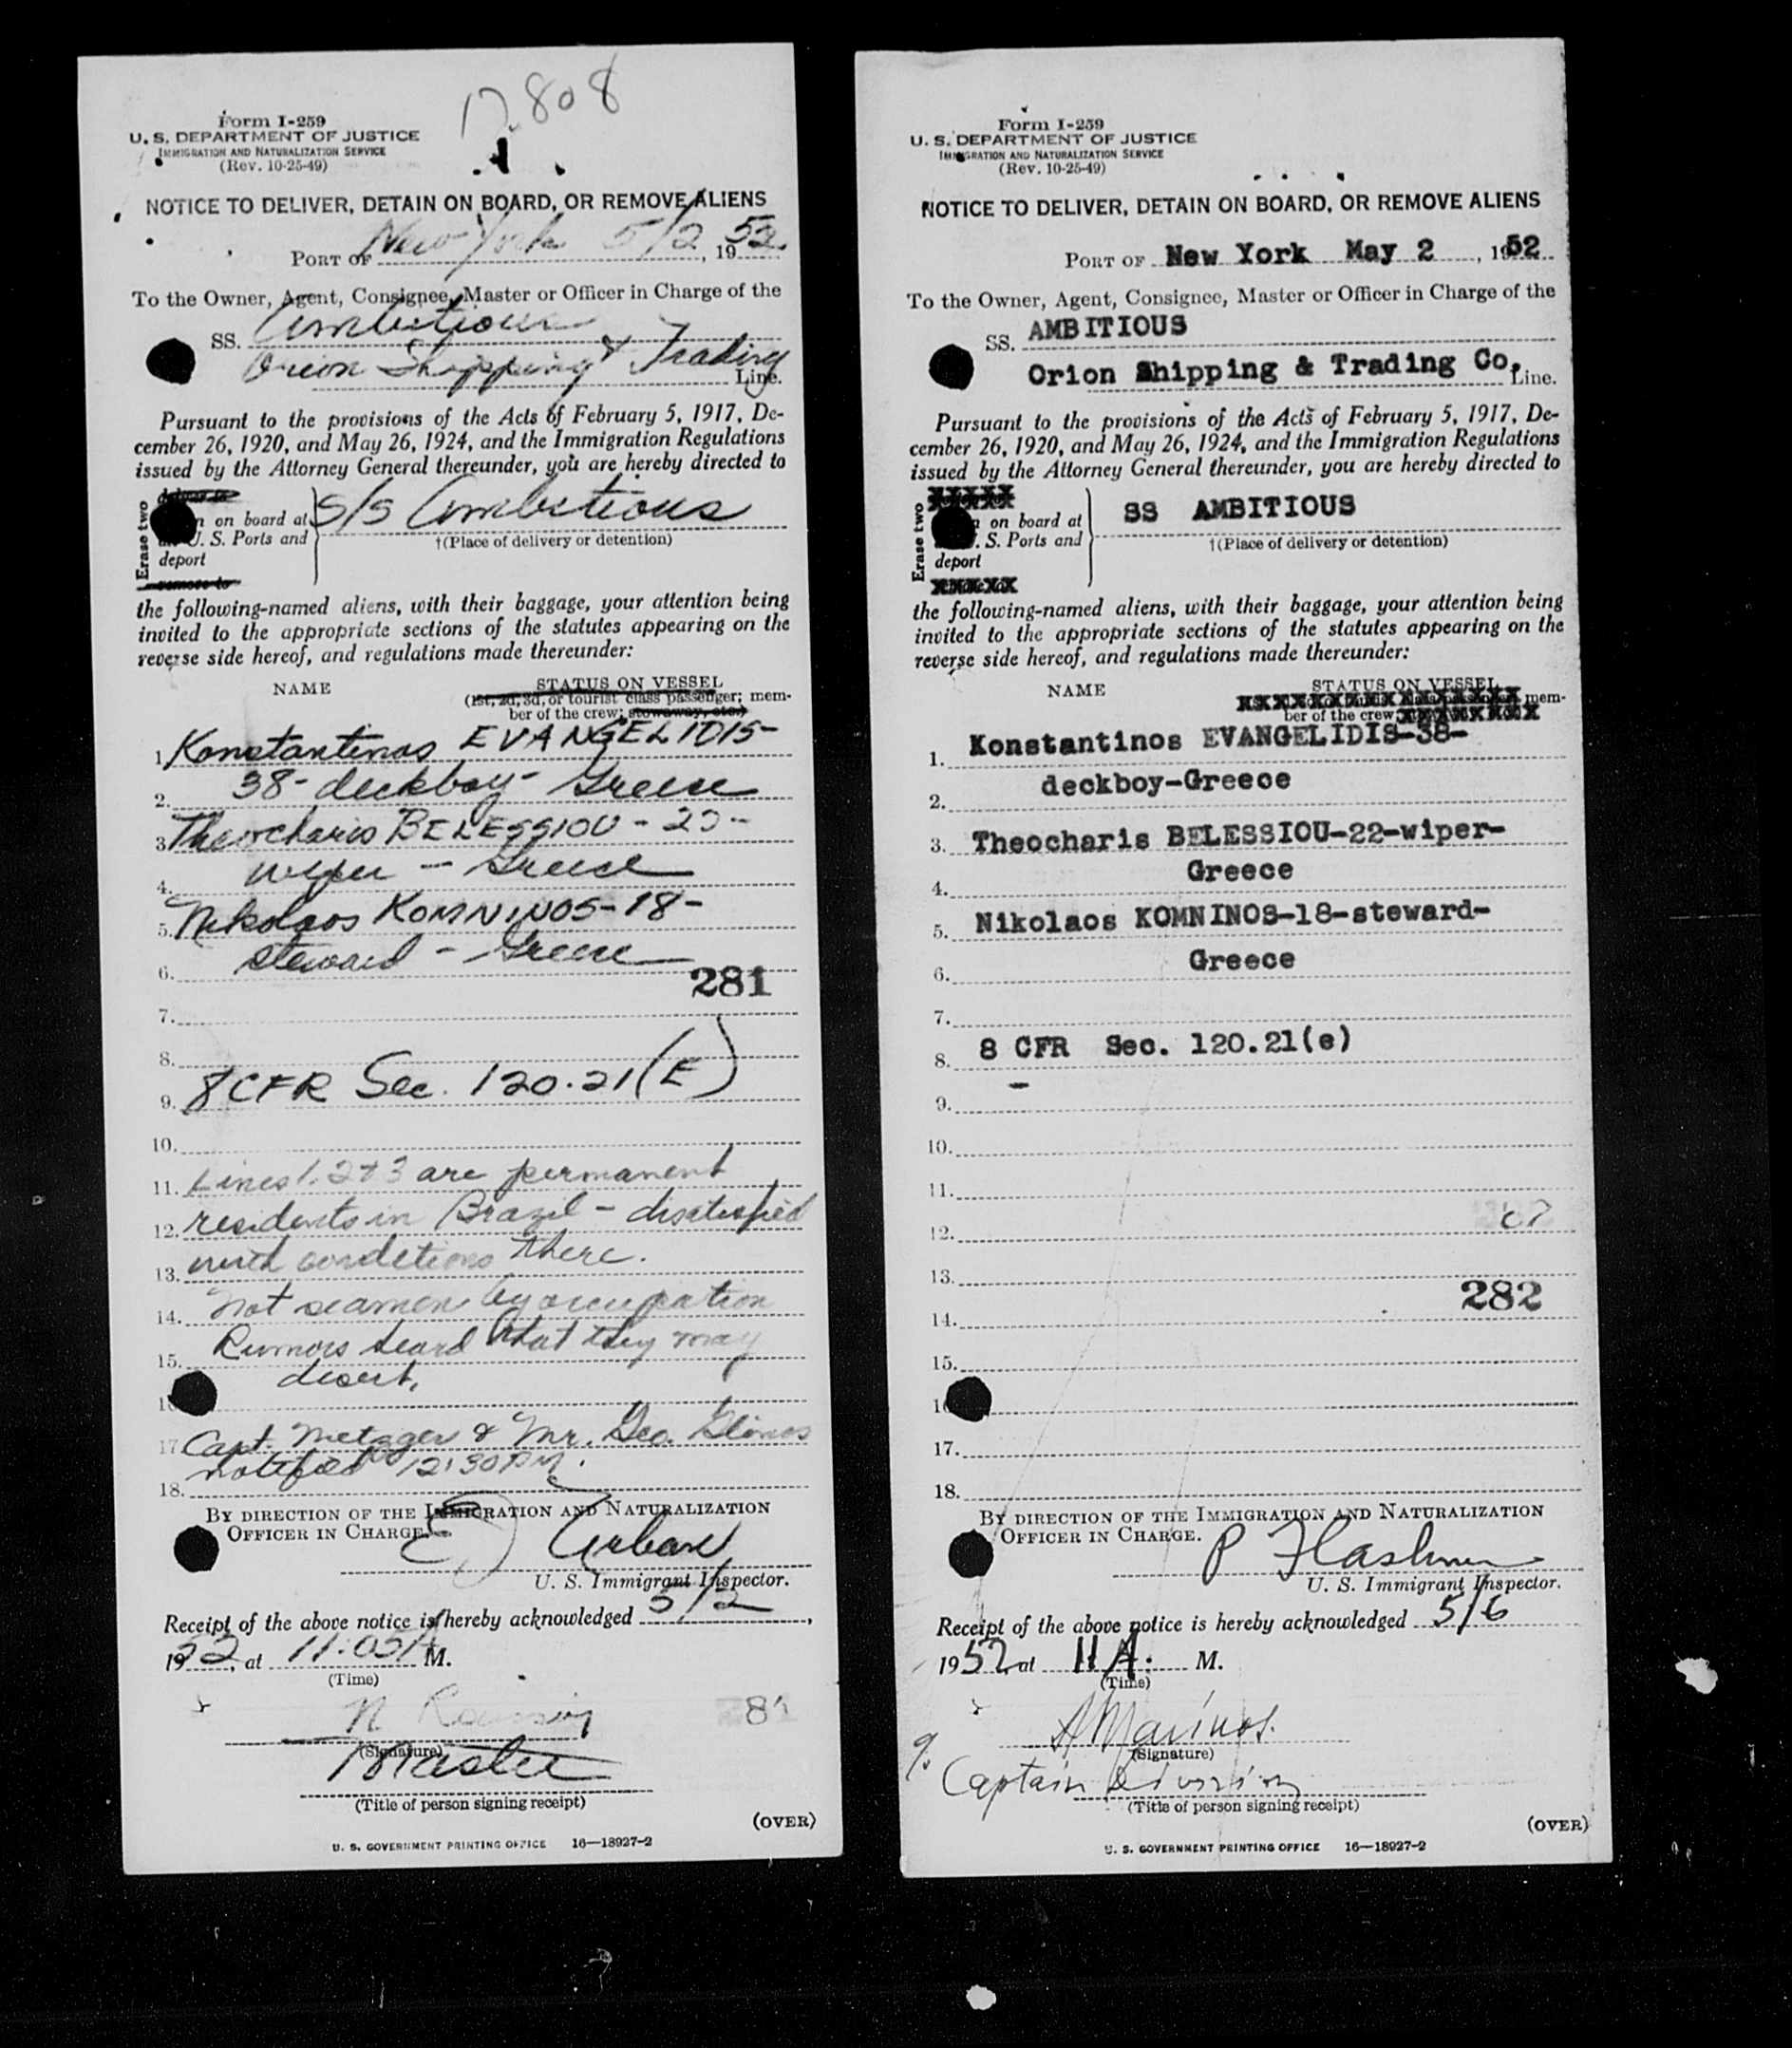 17808
Form I-259
U. S. DEPARTMENT OF JUSTICE
IMMIGRATION AND NATURALIZATION SERVICE
(Rev. 10-25-49)
NOTICE TO DELIVER, DETAIN ON BOARD, OR REMOVE ALIENS
PORT OF New York 5/2, 1952.
To the Owner, Agent, Consignee, Master or Officer in Charge of the
SS. Ambitious
Orion Shipping & Trading Line.
Pursuant to the provisions of the Acts of February 5, 1917, De-
cember 26, 1920, and May 26, 1924, and the Immigration Regulations
issued by the Attorney General thereunder, you are hereby directed to
Erase two
on board at
U. S. Ports and
deport
remove to
S/S Ambitious
†(Place of delivery or detention)
the following-named aliens, with their baggage, your attention being
invited to the appropriate sections of the statutes appearing on the
reverse side hereof, and regulations made thereunder:
NAME STATUS ON VESSEL
(1st, 2d, 3d, or tourist class passenger; mem-
ber of the crew; stowaway, etc.)
1. Konstantinos EVANGELIDIS-
2. 38- deckboy- Greece
3. Theocharis BELESSIOU - 22 -
4. wiper - Greece
5. Nikolaos KOMNINOS-18-
6. steward - Greece
281
7.
8.
9. 8 CFR Sec. 120.21(E)
10.
11. Lines 1. 2 & 3 are permanent
12. residents in Brazil - disatisfied
13. with conditions there.
14. Not seamen by occupation
15. Rumors heard that they may
desert.
17. Capt. Metzger & Mr. Geo. Glinos
notified 12:30 PM.
18.
BY DIRECTION OF THE IMMIGRATION AND NATURALIZATION
OFFICER IN CHARGE.
Urban
U. S. Immigrant Inspector.
Receipt of the above notice is hereby acknowledged 5/2,
1952, at 11:05 A M.
(Time)
N.
(Signature)
Master
(Title of person signing receipt)
(OVER)
U. S. GOVERNMENT PRINTING OFFICE 16—18927-2
Form I-259
U. S. DEPARTMENT OF JUSTICE
IMMIGRATION AND NATURALIZATION SERVICE
(Rev. 10-25-49)
NOTICE TO DELIVER, DETAIN ON BOARD, OR REMOVE ALIENS
PORT OF New York May 2, 1952
To the Owner, Agent, Consignee, Master or Officer in Charge of the
SS. AMBITIOUS
Orion Shipping & Trading Co. Line.
Pursuant to the provisions of the Acts of February 5, 1917, De-
cember 26, 1920, and May 26, 1924, and the Immigration Regulations
issued by the Attorney General thereunder, you are hereby directed to
Erase two
on board at
S. Ports and
deport
SS AMBITIOUS
†(Place of delivery or detention)
the following-named aliens, with their baggage, your attention being
invited to the appropriate sections of the statutes appearing on the
reverse side hereof, and regulations made thereunder:
NAME STATUS ON VESSEL
mem-
ber of the crew
1. Konstantinos EVANGELIDIS-38-
2. deckboy-Greece
3. Theocharis BELESSIOU-22-wiper-
4. Greece
5. Nikolaos KOMNINOS-18-steward-
6. Greece
7.
8. 8 CFR Sec. 120.21(e)
9.
10.
11.
12.
13.
282
14.
15.
16
17.
18.
BY DIRECTION OF THE IMMIGRATION AND NATURALIZATION
OFFICER IN CHARGE.
P
U. S. Immigrant Inspector.
Receipt of the above notice is hereby acknowledged 5/6
1952 at 11 A. M.
(Time)
A Marinos.
(Signature)
Captain Division
(Title of person signing receipt)
(OVER)
U. S. GOVERNMENT PRINTING OFFICE 16—18927-2